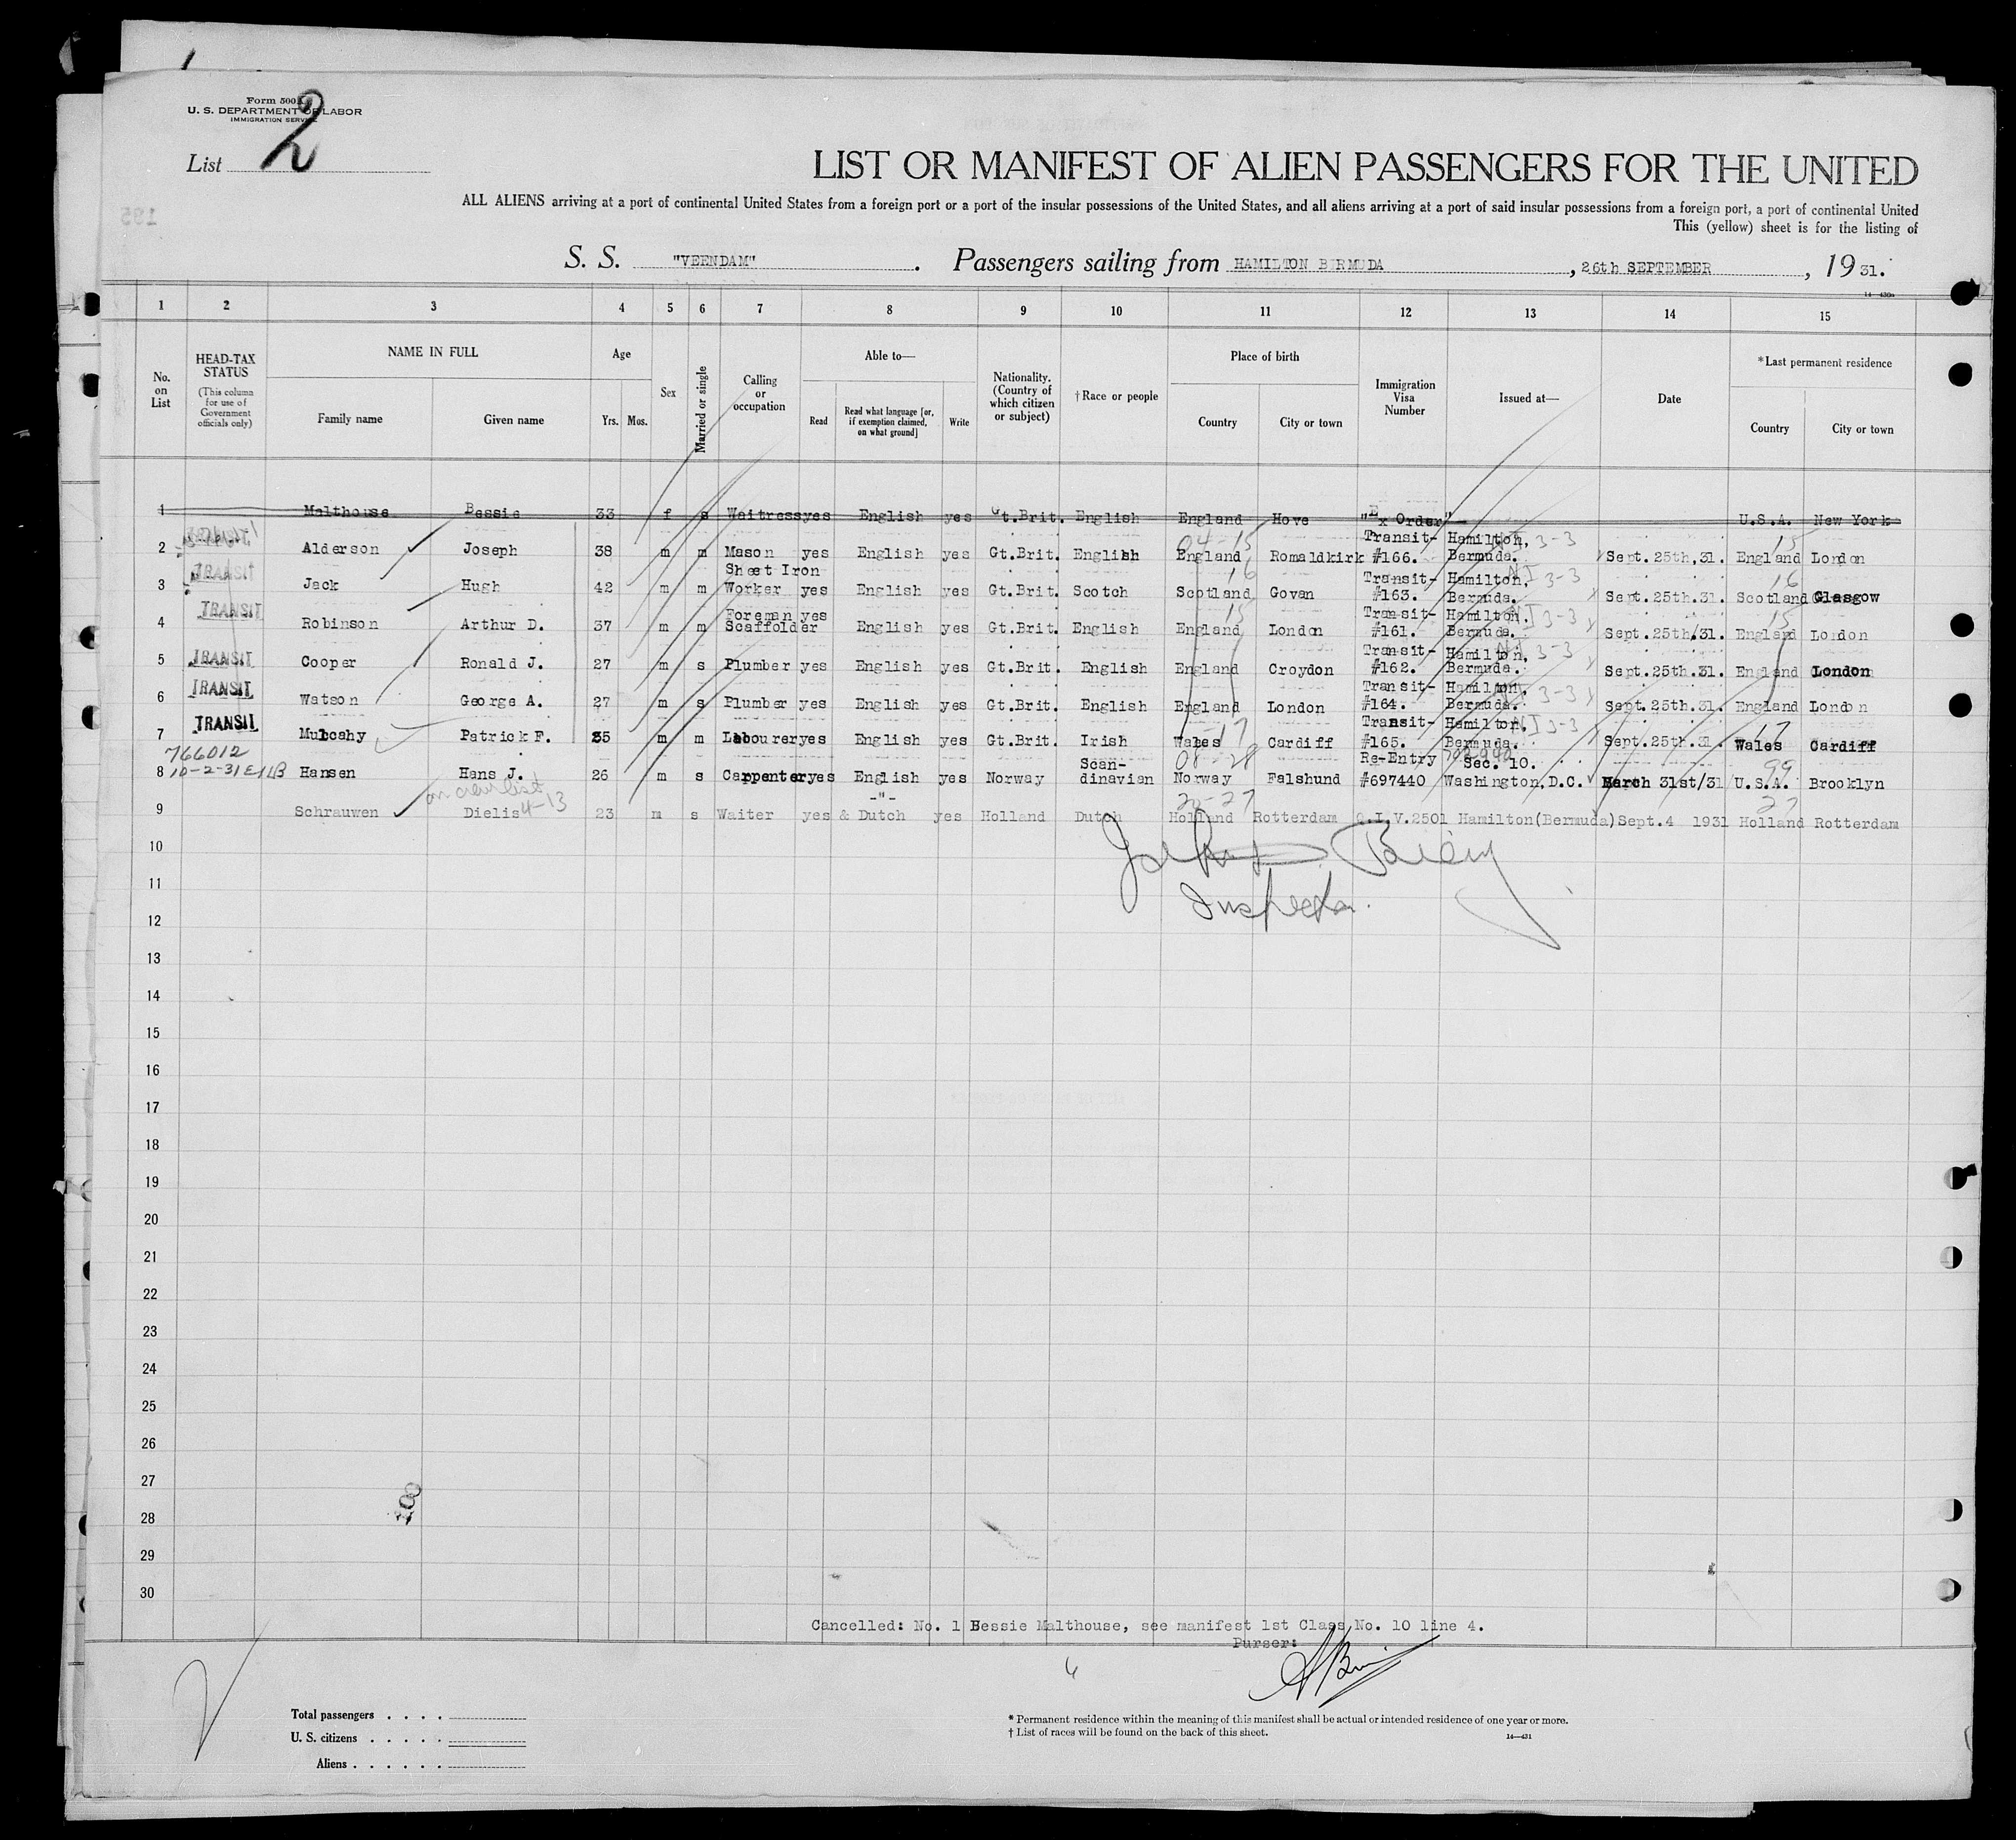 Form 500
U. S. DEPARTMENT OF LABOR
IMMIGRATION SERVICE
List 2
LIST OR MANIFEST OF ALIEN PASSENGERS FOR THE UNITED
ALL ALIENS arriving at a port of continental United States from a foreign port or a port of the insular possessions of the United States, and all aliens arriving at a port of said insular possessions from a foreign port, a port of continental United
This (yellow) sheet is for the listing of
S. S. "VEENDAM". Passengers sailing from HAMILTON BERMUDA, 26th SEPTEMBER, 1931.
14—430a
1 2 3 4 5 6 7 8 9 10 11 12 13 14 15
No. on List
HEAD-TAX STATUS (This column for use of Government officials only)
NAME IN FULL
Family name Given name
Age
Yrs. Mos.
Sex
Married or single
Calling or occupation
Able to—
Read Read what language [or, if exemption claimed, on what ground] Write
Nationality. (Country of which citizen or subject)
†Race or people
Place of birth
Country City or town
Immigration Visa Number
Issued at—
Date
*Last permanent residence
Country City or town
1 Malthouse Bessie 33 f s Waitress yes English yes Gt.Brit. English England Hove "Ex Order" U.S.A. New York
04-15 NI 3-3 15
2 Alderson Joseph 38 m m Mason yes English yes Gt.Brit. English England Romaldkirk Transit- #166. Hamilton, Bermuda. Sept.25th.31. England London
TRANSIT 16 NI 3-3 16
3 Jack Hugh 42 m m Sheet Iron Worker yes English yes Gt.Brit. Scotch Scotland Govan Transit- #163. Hamilton, Bermuda. Sept.25th.31. Scotland Glasgow
TRANSIT 15 NI 3-3 15
4 Robinson Arthur D. 37 m m Foreman Scaffolder yes English yes Gt.Brit. English England London Transit- #161. Hamilton, Bermuda. Sept.25th.31. England London
TRANSIT NI 3-3
5 Cooper Ronald J. 27 m s Plumber yes English yes Gt.Brit. English England Croydon Transit- #162. Hamilton, Bermuda. Sept.25th.31. England London
TRANSIT NI 3-3
6 Watson George A. 27 m s Plumber yes English yes Gt.Brit. English England London Transit- #164. Hamilton, Bermuda. Sept.25th.31. England London
TRANSIT 17 NI 3-3 17
7 Mulcahy Patrick F. 35 m m Labourer yes English yes Gt.Brit. Irish Wales Cardiff Transit- #165. Hamilton, Bermuda. Sept.25th.31. Wales Cardiff
766012
10-2-31 08-28 99
8 Hansen Hans J. 26 m s Carpenter yes English yes Norway Scandinavian Norway Falshund Re-Entry #697440 Sec. 10. Washington, D.C. March 31st/31 U.S.A. Brooklyn
on crew list 4-13 20-27 27
9 Schrauwen Dielis 23 m s Waiter yes -"- & Dutch yes Holland Dutch Holland Rotterdam Q.I.V.2501 Hamilton(Bermuda) Sept.4 1931 Holland Rotterdam
10
Inspector.
11
12
13
14
15
16
17
18
19
20
21
22
23
24
25
26
27
28
29
30
100
Cancelled: No. 1 Bessie Malthouse, see manifest 1st Class No. 10 line 4.
Purser:
Total passengers
U. S. citizens
Aliens
* Permanent residence within the meaning of this manifest shall be actual or intended residence of one year or more.
† List of races will be found on the back of this sheet.
14—431